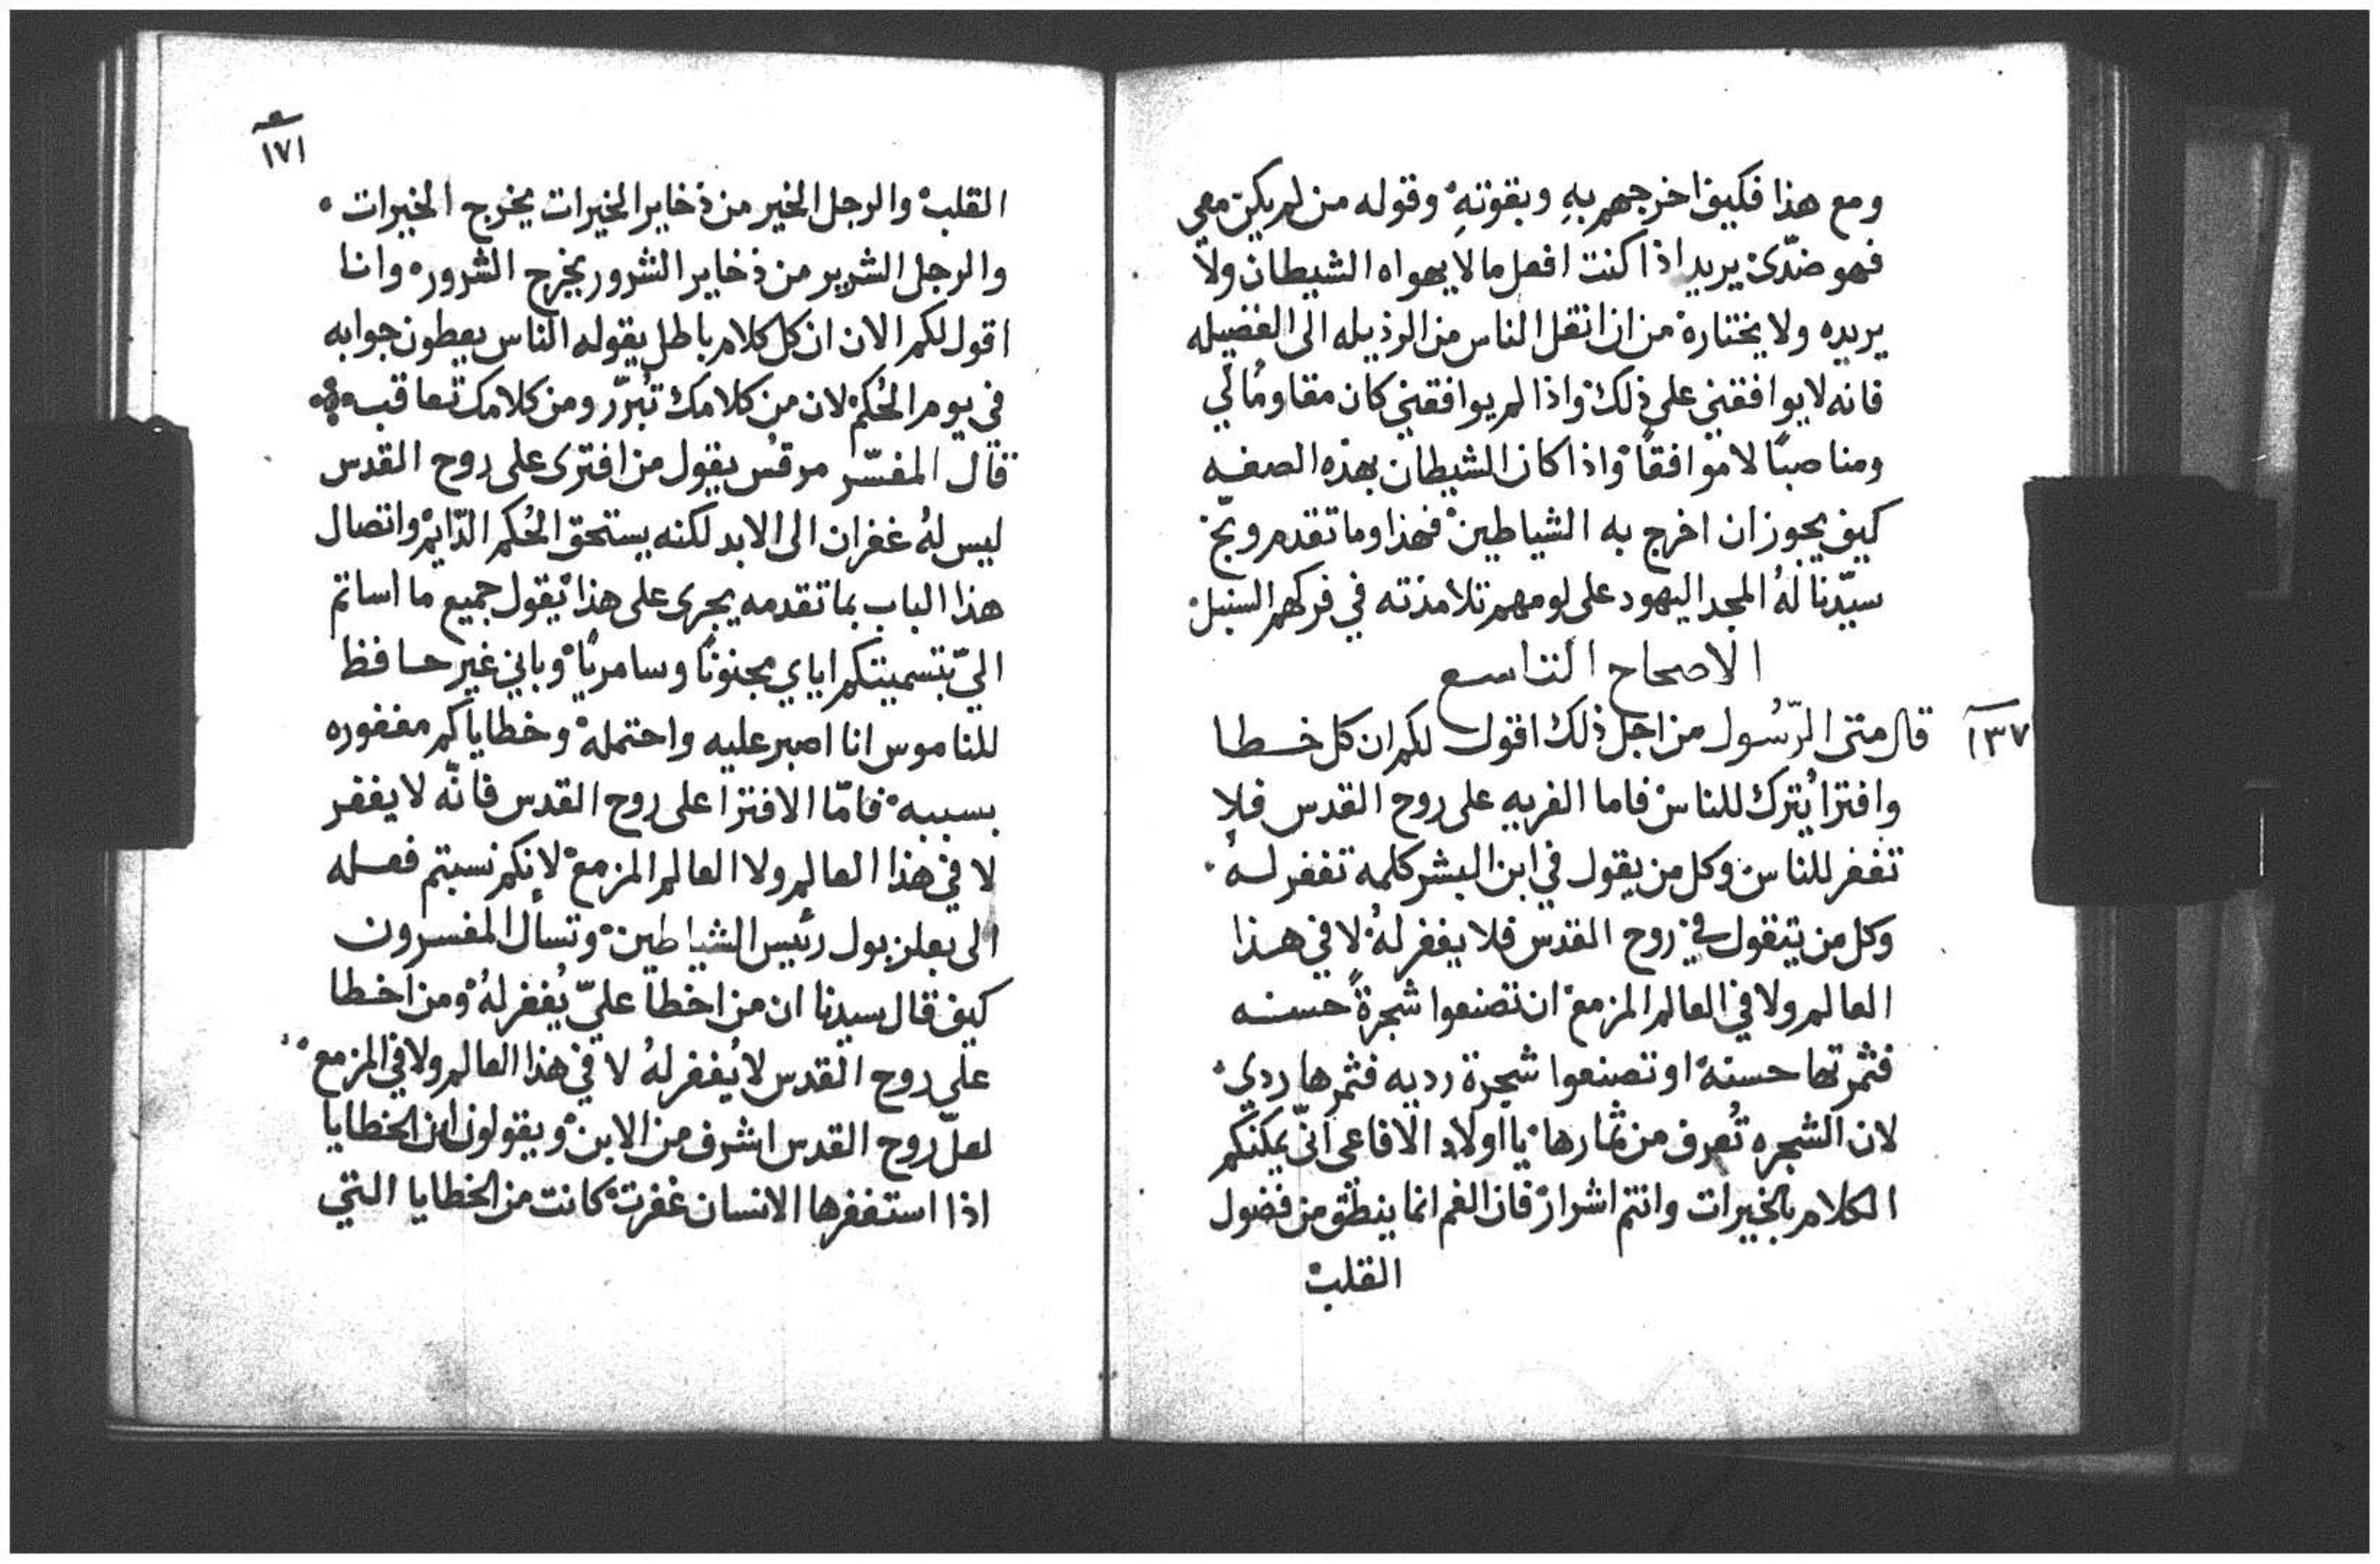 ومع هذا فكيف اخرجهم بهِ وبقوتهِ وقوله من لم يكن معي
فهو ضدّي يريد اذا كنت افعل ما لا يهواه الشيطان ولا
يريده ولا يختاره من ان انقل الناس من الرذيله الى الفضيله
فانه لا يوافقني على ذلك واذا لم يوافقني كان مقاومًا لي
ومناصبًا لا موافقاً واذا كان الشيطان بهذه الصفه
كيف يجوز ان اخرج به الشياطين فهذا وما تقدم وبّخ
سيّدنا لهُ المجد اليهود على لومهم تلامذته في فركهم السنبل
الاصحاح التاسع
١٣٧ قال متى الرّسُول من اجل ذلك اقول لكم ان كل خطا
وافترا يُترك للناس فاما الفريه على روح القدس فلا
تغفر للناس وكل من يقول في ابن البشر كلمه تغفر لهُ
وكل من يتقول في روح القدس فلا يغفر لهُ لا في هذا
العالم ولا في العالم المزمع ان تصنعوا شجرةً حسنه
فثمرتها حسنة او تصنعوا شجرة رديه فثمرها ردي
لان الشجره تُعرف من ثمارها يا اولاد الافاعى انّى يمكنكم
الكلام بالخيرات وانتم اشرار فان الفم انما ينطق من فضول
القلب
١٧١
القلب والرجل الخير من ذخاير الخيرات يخرج الخيرات
والرجل الشرير من ذخاير الشرور يخرج الشرور وانا
اقول لكم الان ان كل كلام باطل يقوله الناس يعطون جوابه
في يوم الحُكم لان من كلامك تُبرّر ومن كلامك تُعاقب
قال المفسّر مرقس يقول من افترى على روح القدس
ليس لهُ غفران الى الابد لكنه يستحق الحُكم الدّايم واتصال
هذا الباب بما تقدمه يجرى على هذا يقول جميع ما اساتم
اليّ بتسميتكم اياي مجنونًا وسامريًا وباني غير حافظ
للناموس انا اصبر عليه واحتمله وخطاياكم مغفوره
بسببه فامّا الافترا على روح القدس فانّه لا يغفر
لا في هذا العالم ولا العالم المزمع لانكم نسبتم فعله
الى بعلزبول رئيس الشياطين وتسأل المفسرون
كيف قال سيدنا ان من اخطا عليّ يُغفر لهُ ومن اخطا
على روح القدس لا يُغفر لهُ لا في هذا العالم ولا في المزمع
لعلّ روح القدس اشرف من الابن ويقولون ان الخطايا
اذا استغفرها الانسان غفرت كانت من الخطايا التي